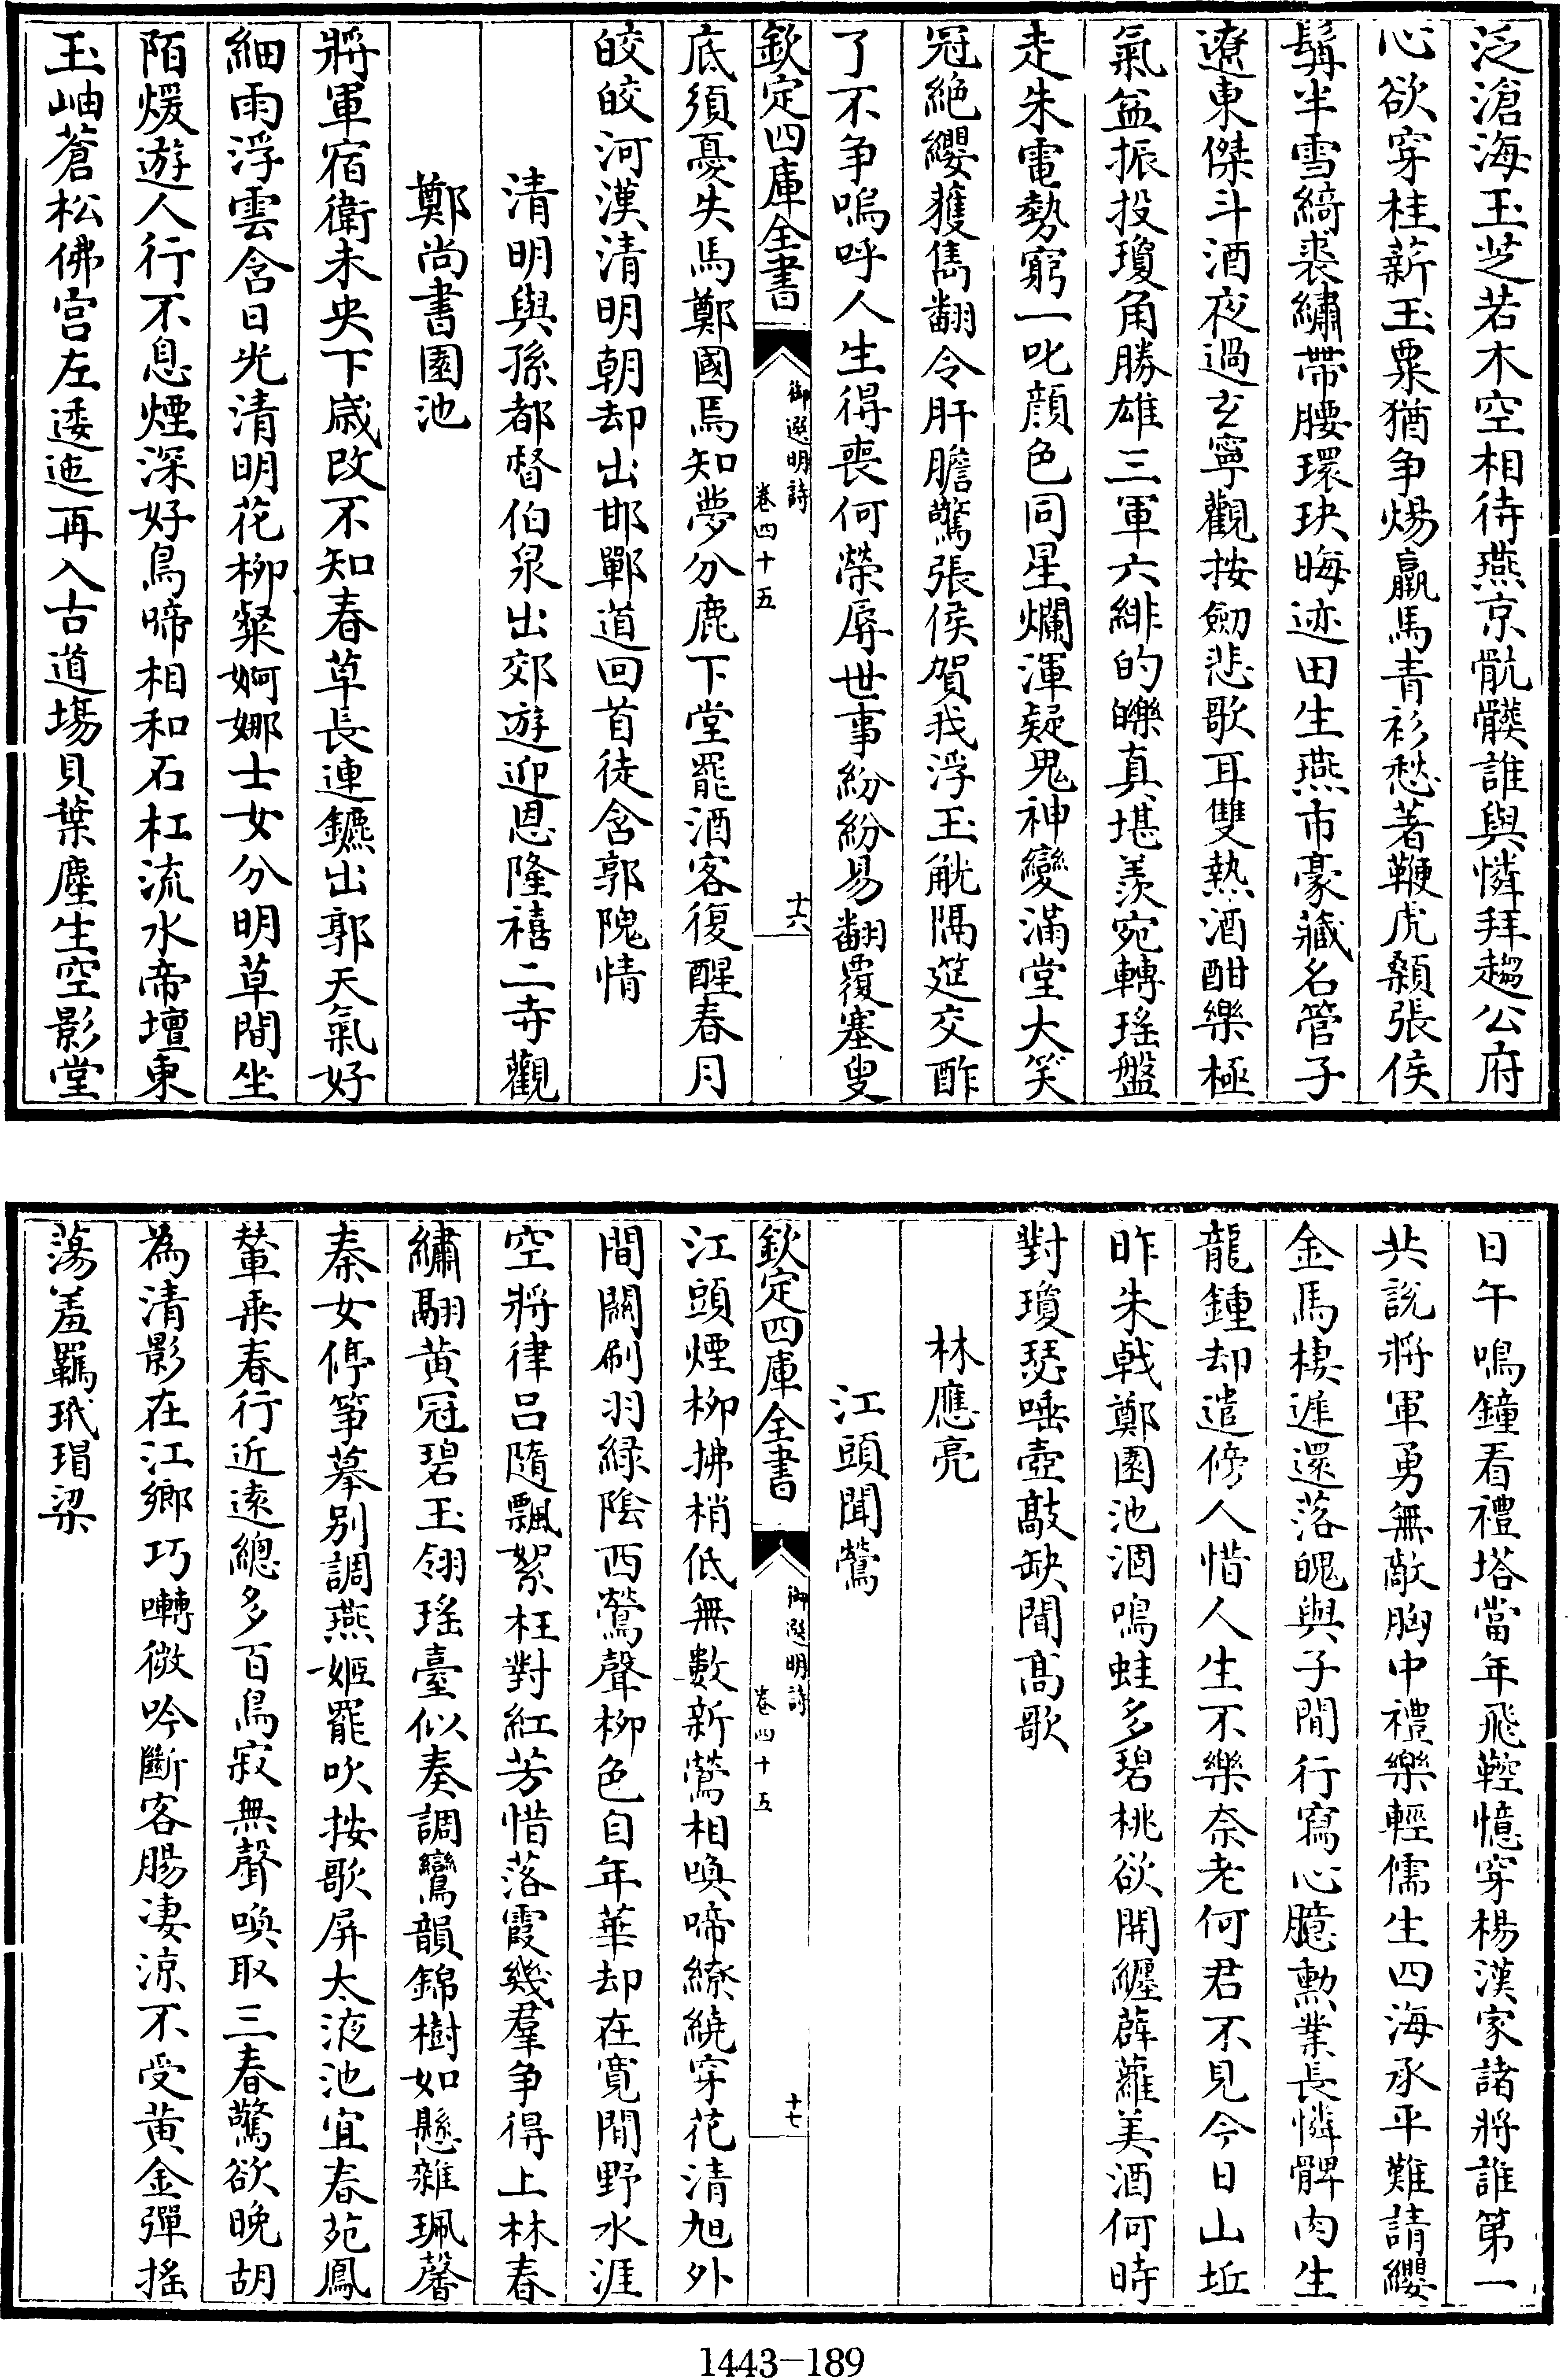 泛滄海玉芝若木空相待燕京骯髒誰與憐拜趨公府
心欲穿桂薪玉粟猶争煬羸馬青衫愁著鞭虎顙張侯
鬅半雪綺裘繡帶腰環玦晦迹田生燕市豪藏名管子
遼東傑斗酒夜過玄寧觀按劒悲歌耳雙熱酒酣樂極
氣益振投瓊角勝雄三軍六緋的皪真堪羨宛轉瑤盤
走朱電勢窮一叱顔色同星爛渾疑鬼神變滿堂大笑
冠絶纓獲雋翻令肝膽驚張侯賀我浮玉觥隔筵交酢
了不争嗚呼人生得喪何榮辱世事紛紛易翻覆塞叟
欽定四庫全書 御選明詩 卷四十五 十六
底須憂失馬鄭國焉知夢分鹿下堂罷酒客復醒春月
皎皎河漢清明朝却出邯鄲道回首徒含郭隗情
清明與孫都督伯泉出郊遊迎恩隆禧二寺觀
鄭尚書園池
將軍宿衛未央下歲改不知春草長連鑣出郭天氣好
細雨浮雲含日光清明花柳粲婀娜士女分明草間坐
陌煖遊人行不息煙深好鳥啼相和石杠流水帝壇東
玉岫蒼松佛宫左逶迤再入古道塲貝葉塵生空影堂
日午鳴鐘看禮塔當年飛鞚憶穿楊漢家諸將誰第一
共説將軍勇無敵胸中禮樂輕儒生四海承平難請纓
金馬棲遲還落魄與子閒行寫心臆勲業長憐髀肉生
龍鍾却遣傍人惜人生不樂奈老何君不見今日山丘
昨朱㦸鄭園池涸鳴蛙多碧桃欲開纒薜蘿美酒何時
對瓊瑟唾壺敲缺聞高歌
林應亮
江頭聞鶯
欽定四庫全書 御選明詩 卷四十五 十七
江頭煙柳拂梢低無數新鶯相喚啼繚繞穿花清旭外
間關刷羽緑陰西鶯聲柳色自年華却在寛閒野水涯
空將律呂隨飄絮枉對紅芳惜落霞幾羣争得上林春
繡翮黄冠碧玉翎瑤臺似奏調鸞韻錦樹如懸雜珮馨
秦女停筝摹别調燕姬罷吹按歌屏太液池宜春苑鳳
輦乗春行近遠總多百鳥寂無聲喚取三春驚欲晚胡
為清影在江鄉巧囀微吟斷客腸凄凉不受黄金彈搖
蕩羞羈玳瑁梁
1443—189